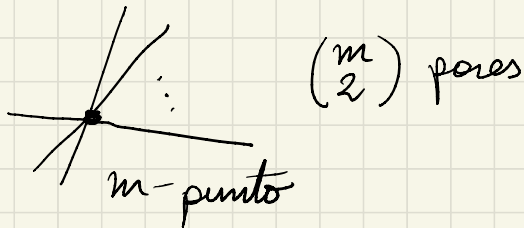 (m 2) pares
m-punto